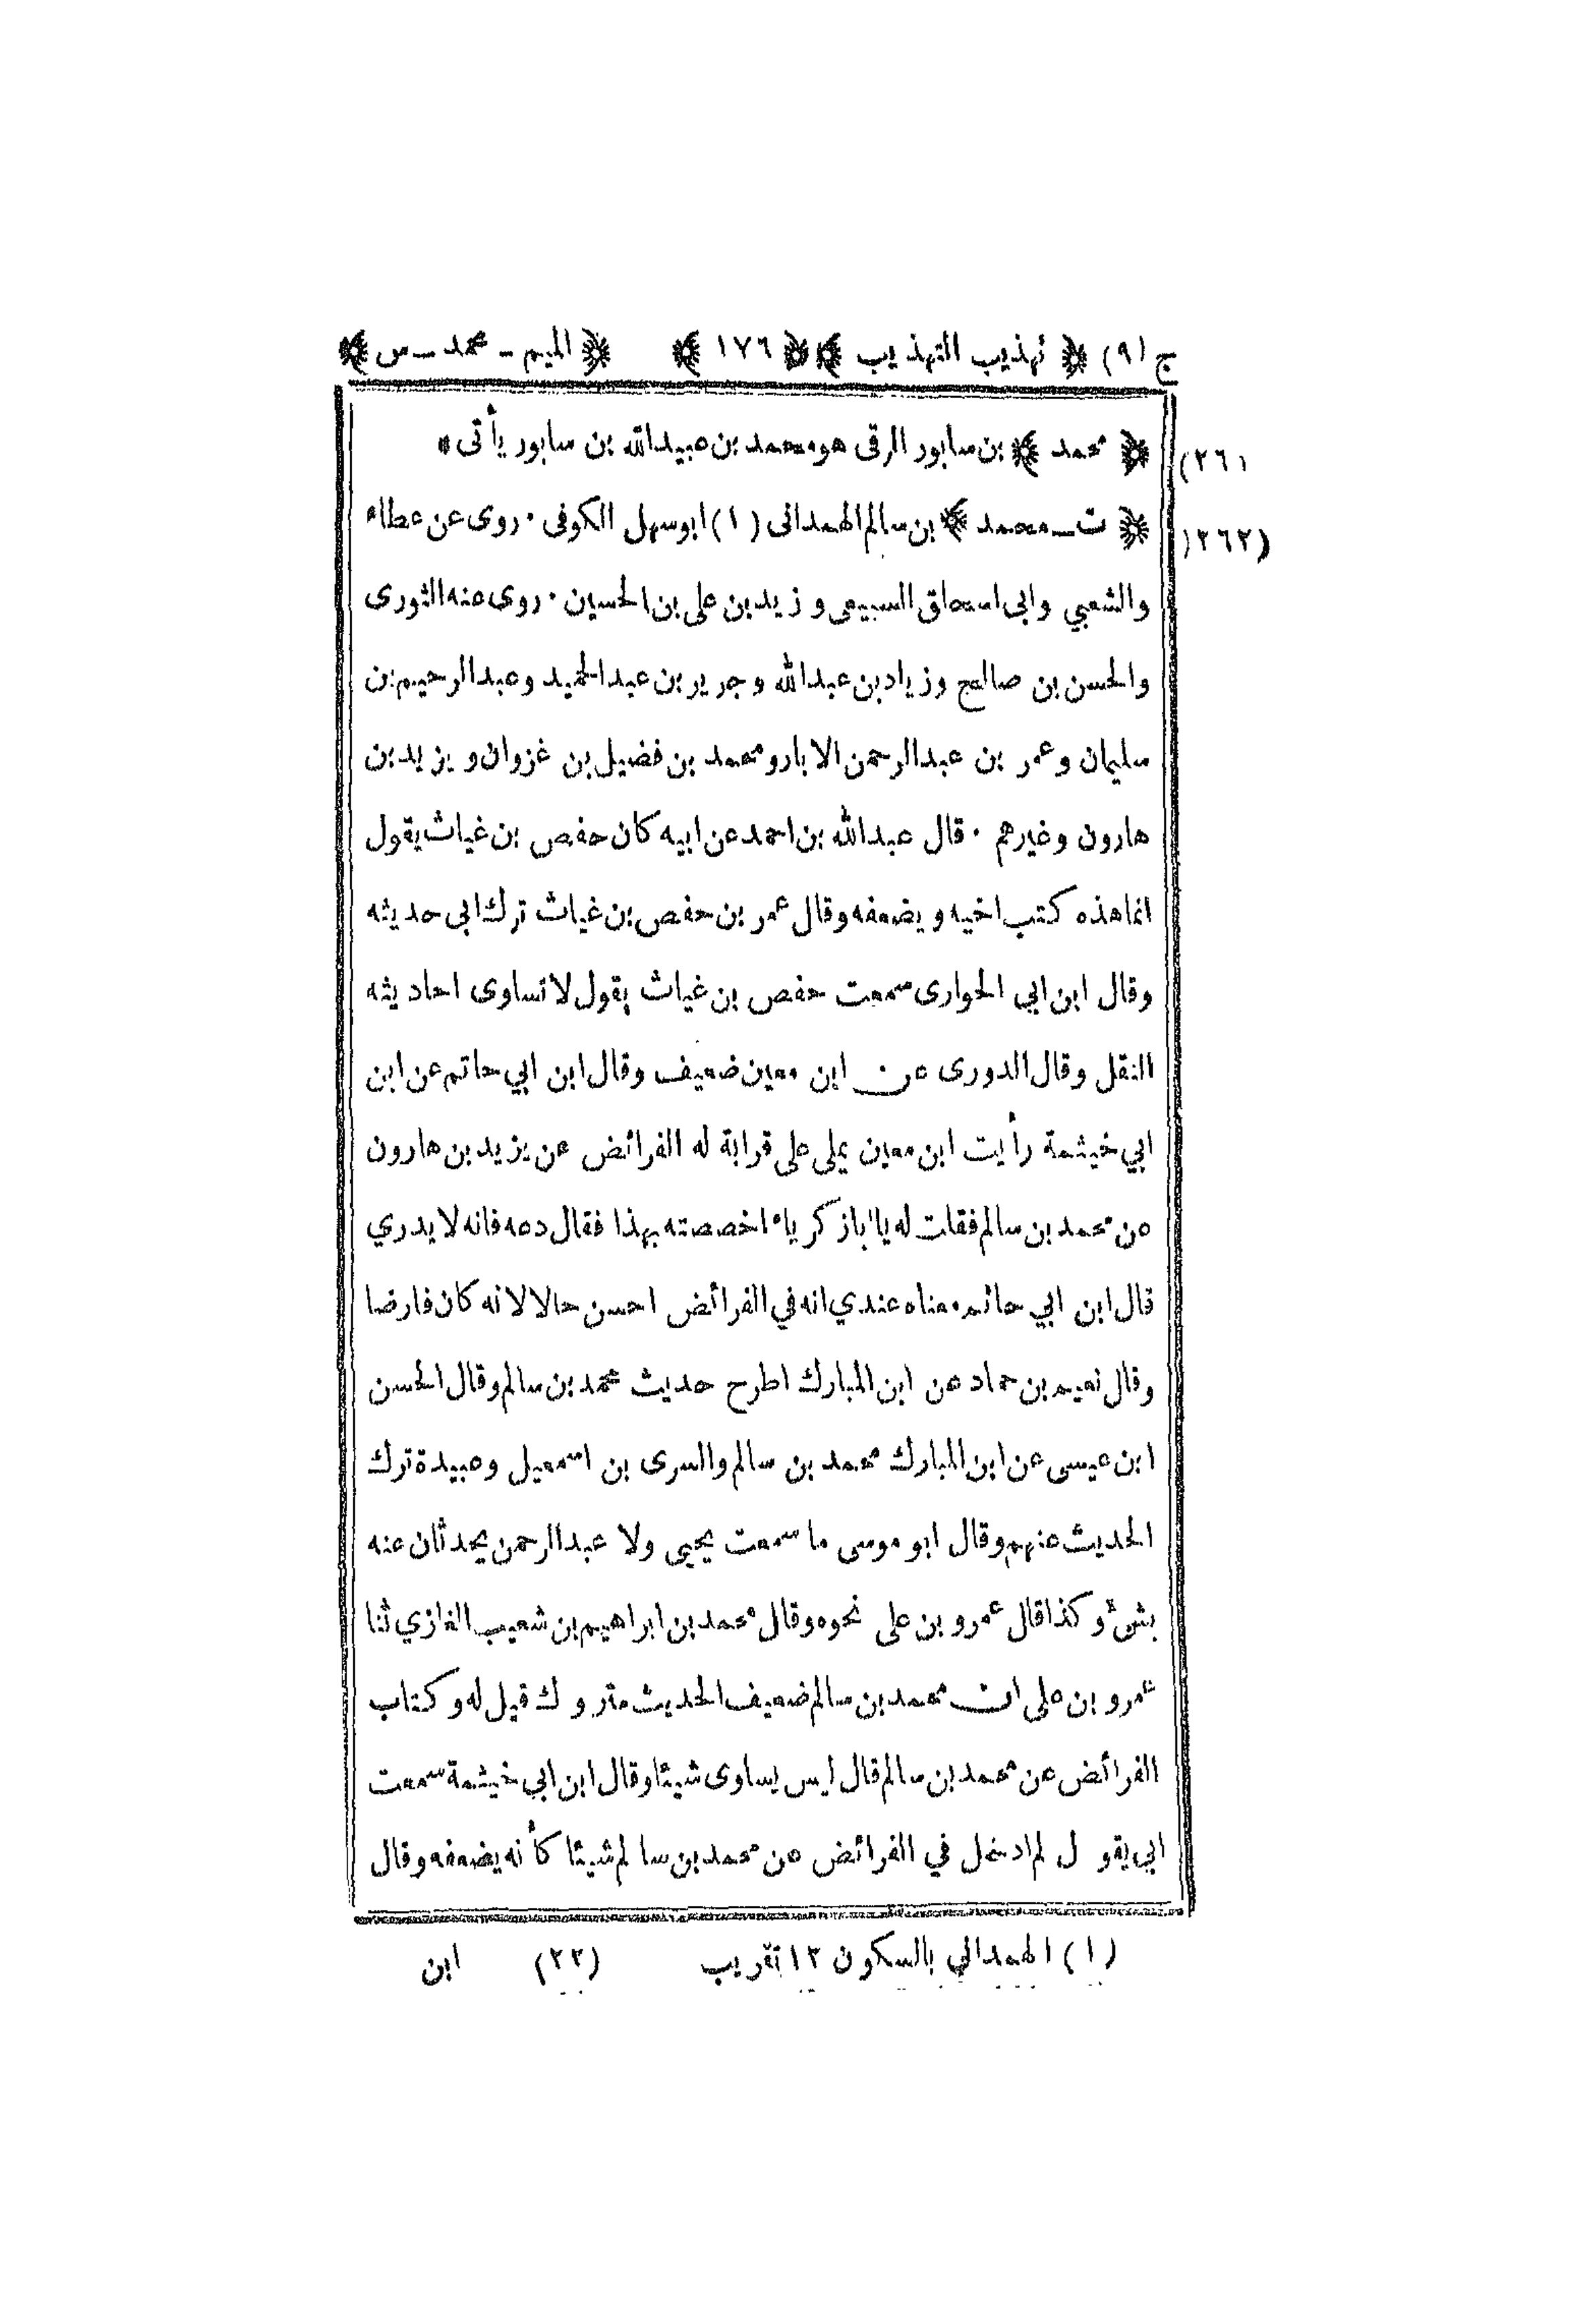 ج (٩) ﴿ تهذيب التهذيب ﴾ ﴿ ١٧٦ ﴾ ﴿ الميم - محمد - س ﴾
(٢٦١ ﴿ محمد ﴾ بن سابور الرقى هو محمد بن عبيدالله بن سابور يأتى *
(٢٦٢) ﴿ ت - محمد ﴾ بن سالم الهمدانى (١) ابوسهل الكوفى . روى عن عطاء
والشعبي وابى اسحاق السبيعى و زيد بن على بن الحسين . روى عنه الثورى
والحسن بن صالح وزياد بن عبدالله وجرير بن عبدالحميد وعبدالرحيم بن
سليمان وعمر بن عبدالرحمن الابار ومحمد بن فضيل بن غزوان ويزيد بن
هارون وغيرهم . قال عبدالله بن احمد عن ابيه كان حفص بن غياث يقول
انما هذه كتب اخيه ويضعفه وقال عمر بن حفص بن غياث ترك ابى حديثه
وقال ابن ابي الحوارى سمعت حفص بن غياث يقول لا تساوى احاديثه
النقل وقال الدورى عن ابن معين ضعيف وقال ابن ابي حاتم عن ابن
ابي خيثمة رأيت ابن معين يملى على قرابة له الفرائض عن يزيد بن هارون
عن محمد بن سالم فقلت له يا ابا زكرياء اخصصته بهذا فقال دعه فانه لا يدري
قال ابن ابي حاتم معناه عندي انه في الفرائض احسن حالا لانه كان فارضا
وقال نعيم بن حماد عن ابن المبارك اطرح حديث محمد بن سالم وقال الحسن
ابن عيسى عن ابن المبارك محمد بن سالم والسرى بن اسمعيل وعبيدة ترك
الحديث عنهم وقال ابو موسى ما سمعت يحيى ولا عبدالرحمن يحدثان عنه
بشئ وكذا قال عمرو بن على نحوه وقال محمد بن ابراهيم بن شعيب الغازي ثنا
عمرو بن على ان محمد بن سالم ضعيف الحديث متروك قيل له وكتاب
الفرائض عن محمد بن سالم قال ليس يساوى شيئا وقال ابن ابي خيثمة سمعت
ابي يقول لم ادخل في الفرائض عن محمد بن سالم شيئا كأنه يضعفه وقال
(١) الهمدانى بالسكون ١٢ تقريب (٢٢) ابن